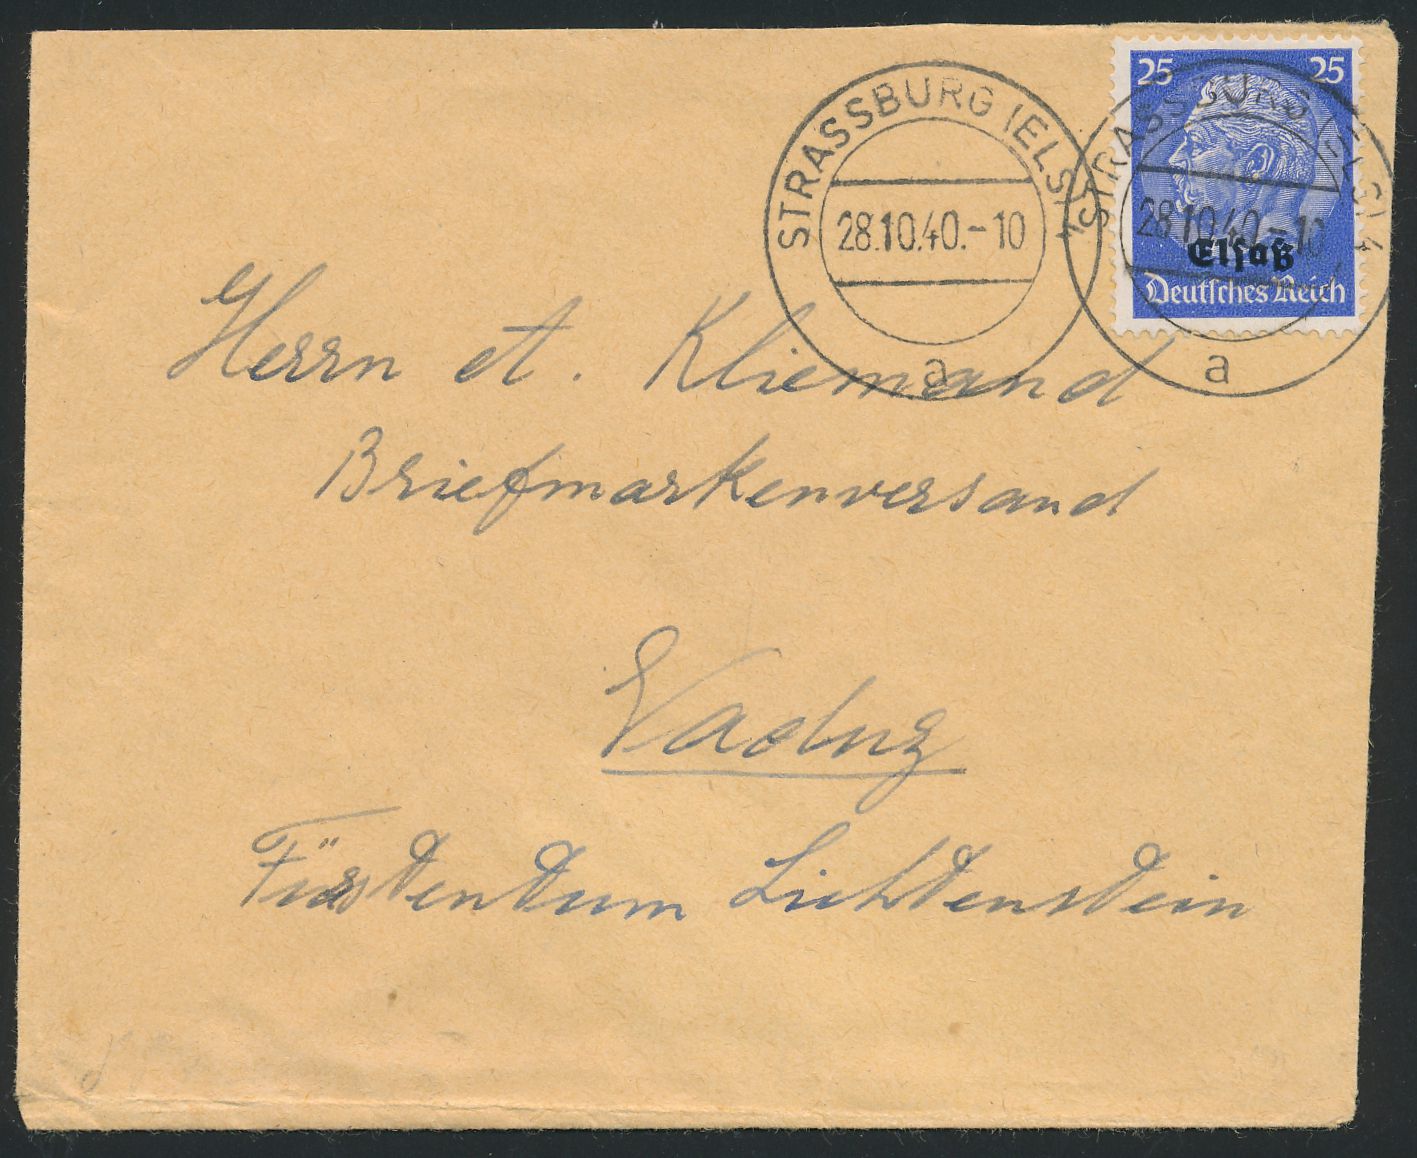 25 25
STRASSBURG (ELS) 4
28.10.40.-10
a
STRASSBURG (ELS) 4
28.10.40.-10
a
Elsaß
Deutsches Reich
Herrn A. Kliemand
Briefmarkenversand
Vaduz
Fürstentum Lichtenstein